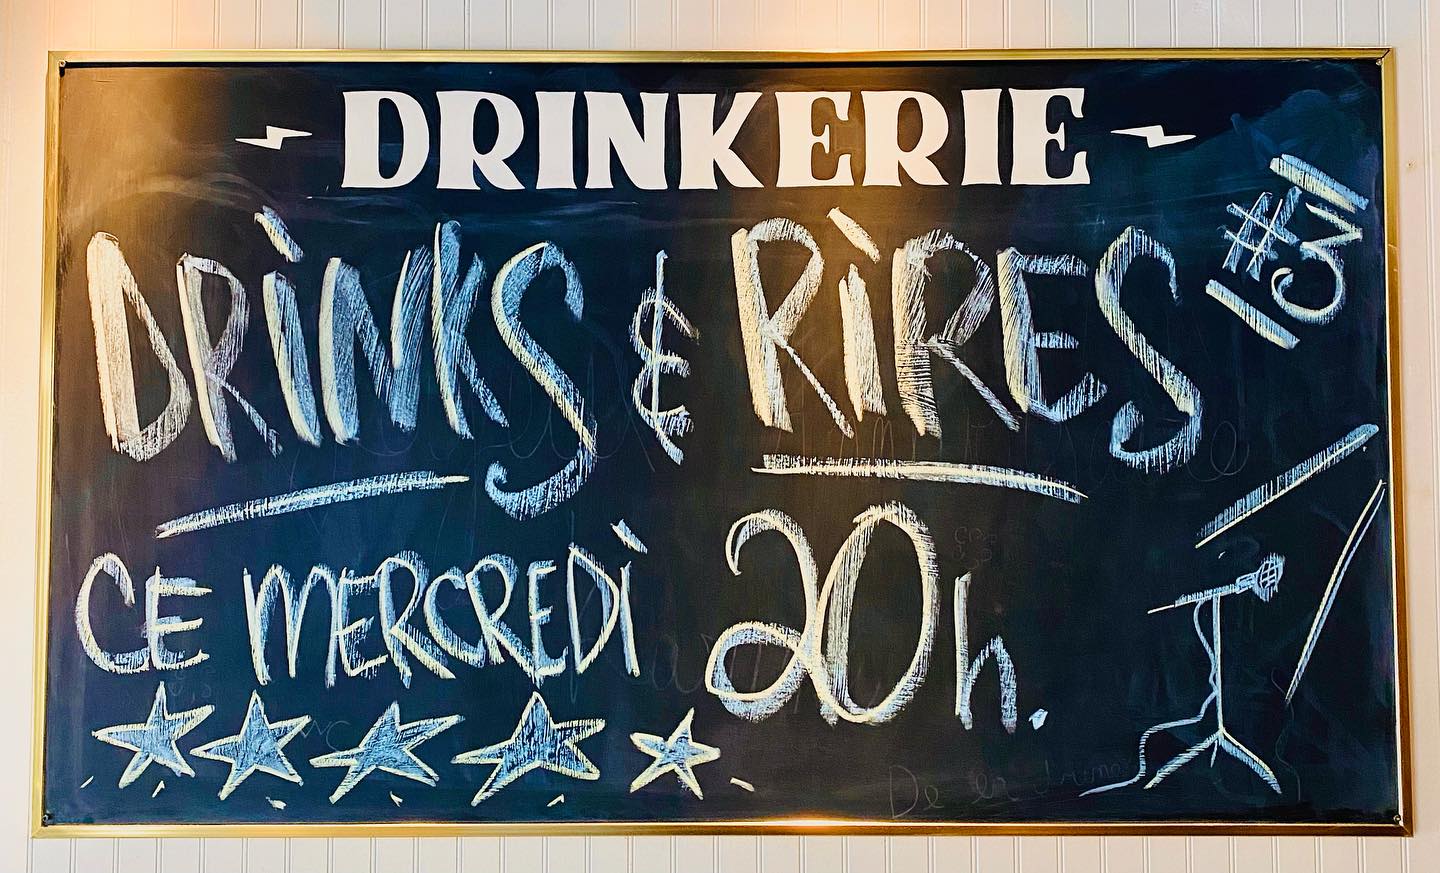 DRINKERIE
DRINKS & RIRES
CE MERCREDI 20h.
De la